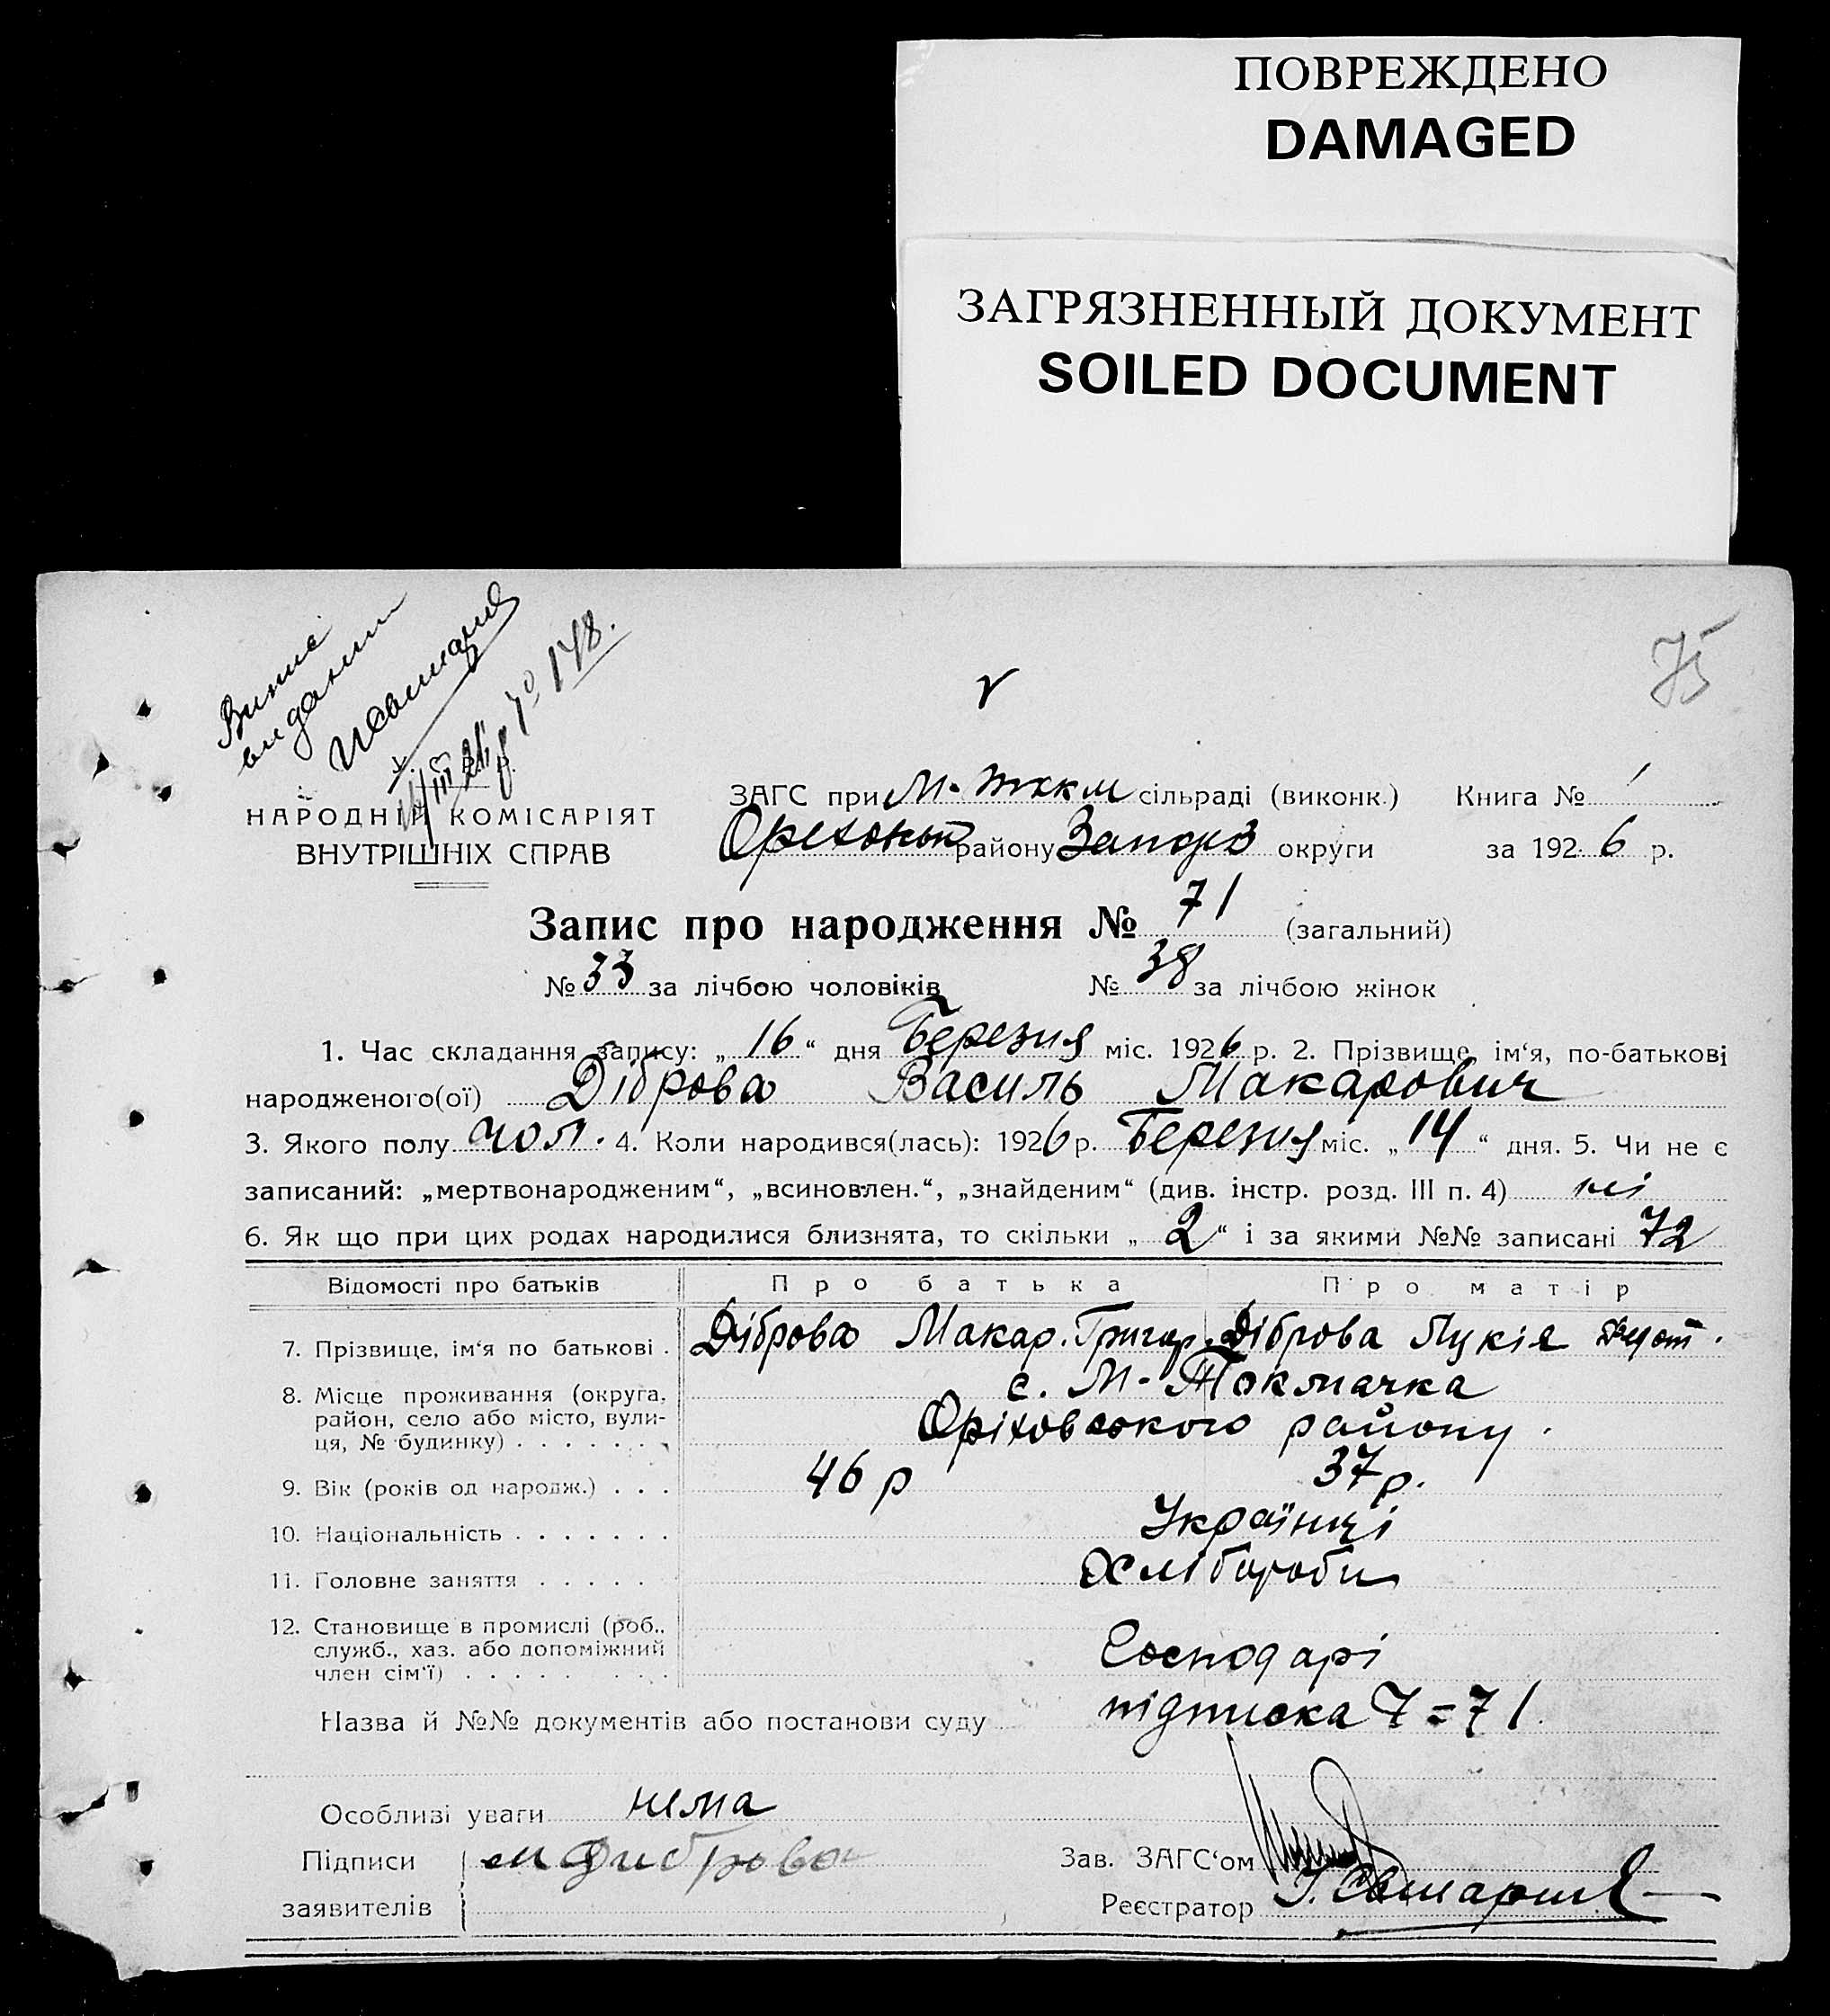 ПОВРЕЖДЕНО
DAMAGED
ЗАГРЯЗНЕННЫЙ ДОКУМЕНТ
SOILED DOCUMENT
75
Випис
виданий
№ 148.
НАРОДНІЙ КОМІСАРІЯТ
ВНУТРІШНІХ СПРАВ
ЗАГС при М-Токм сільраді (виконк.) Книга № 1
Орехонськ району Запоріз округи за 1926 р.
Запис про народження № 71 (загальний)
№ 33 за лічбою чоловіків № 38 за лічбою жінок
1. Час складання запису: „16“ дня Березня міс. 1926 р. 2. Прізвище, ім‘я, по-батькові
народженого(ої) Діброва Василь Макарович
3. Якого полу чол. 4. Коли народився(лась): 1926 р. Березня міс. „14“ дня. 5. Чи не є
записаний: „мертвонародженим“, „всиновлен.“, „знайденим“ (див. інстр. розд. III п. 4) ні
6. Як що при цих родах народилися близнята, то скільки „2“ і за якими №№ записані 72
Відомості про батьків Про батька Про матір
7. Прізвище, ім‘я по батькові . Діброва Макар. Григор. Діброва Лукія
8. Місце проживання (округа, район, село або місто, вули-ця, № будинку) . . . . . . . с. М-Токмачка
Оріховського району.
9. Вік (років од народж.) . . . 46 р 37 р.
10. Національність . . . . . . . Українці
11. Головне заняття . . . . . Хлібороби
12. Становище в промислі (роб., служб., хаз. або допоміжний член сім‘ї) . . . . . . . . . Господарі
Назва й №№ документів або постанови суду підписка Ч=71.
Особливі уваги нема
Підписи м Диброва
заявителів
Зав. ЗАГС‘ом
Реєстратор